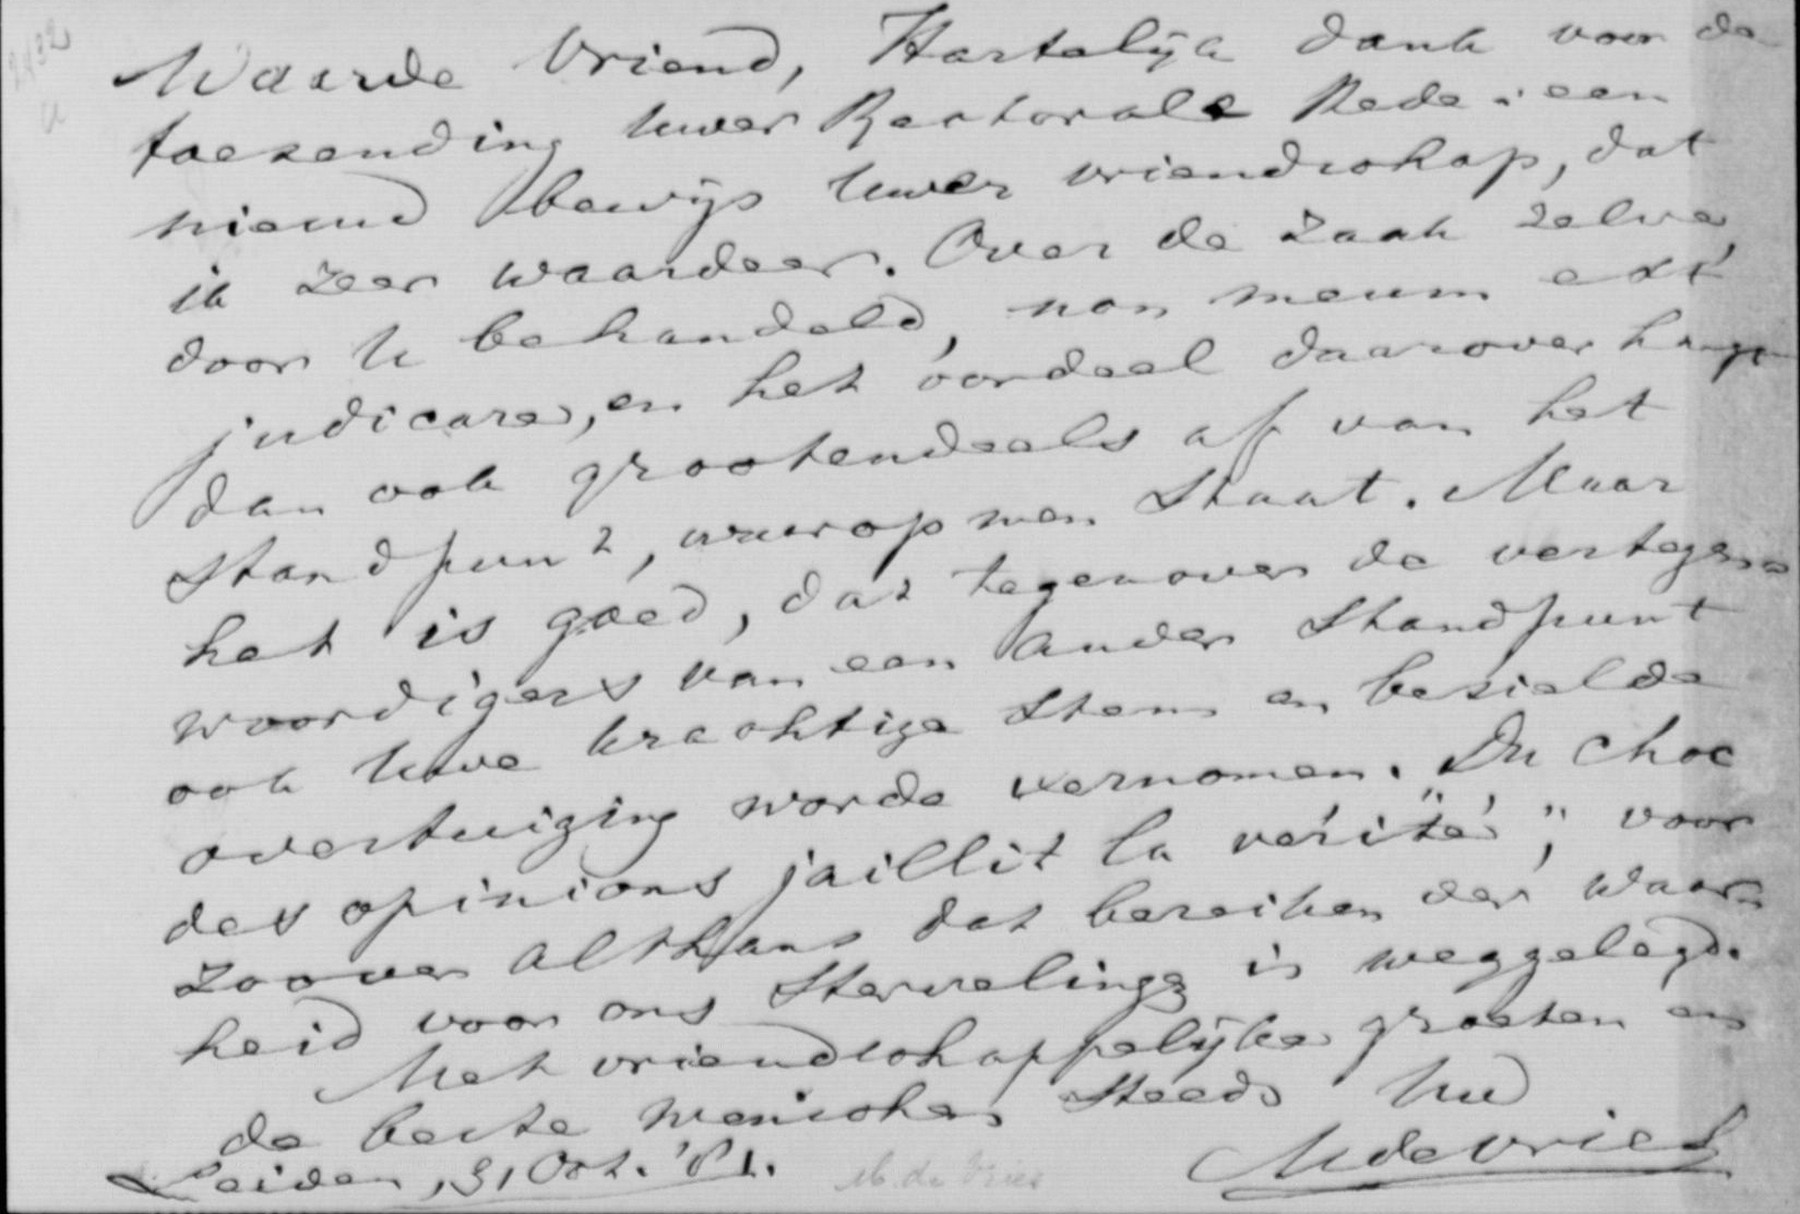 Waarde Vriend, Hartelijk dank voor de
toezending Uwer Rectorale Rede: een
nieuw bewijs Uwer vriendschap, dat
ik zeer waardeer. Over de zaak zelve,
door U behandeld, non meum est
judicare, en het oordeel daarover hangt
dan ook grootendeels af van het
standpunt, waarop men staat. Maar
het is goed, dat tegenover de vertegen-
woordigers van een ander standpunt
ook Uwe krachtige stem en bezielde
overtuiging worde vernomen. "Du choc
des opinions jaillit la vérité", voor
zoover althans dat bereiken der waar-
heid voor ons stervelingen is weggelegd.
Met vriendschappelijke groeten en
de beste wenschen steeds Uw
Leiden, 31 Oct. '81. M. de Vries MdeVries